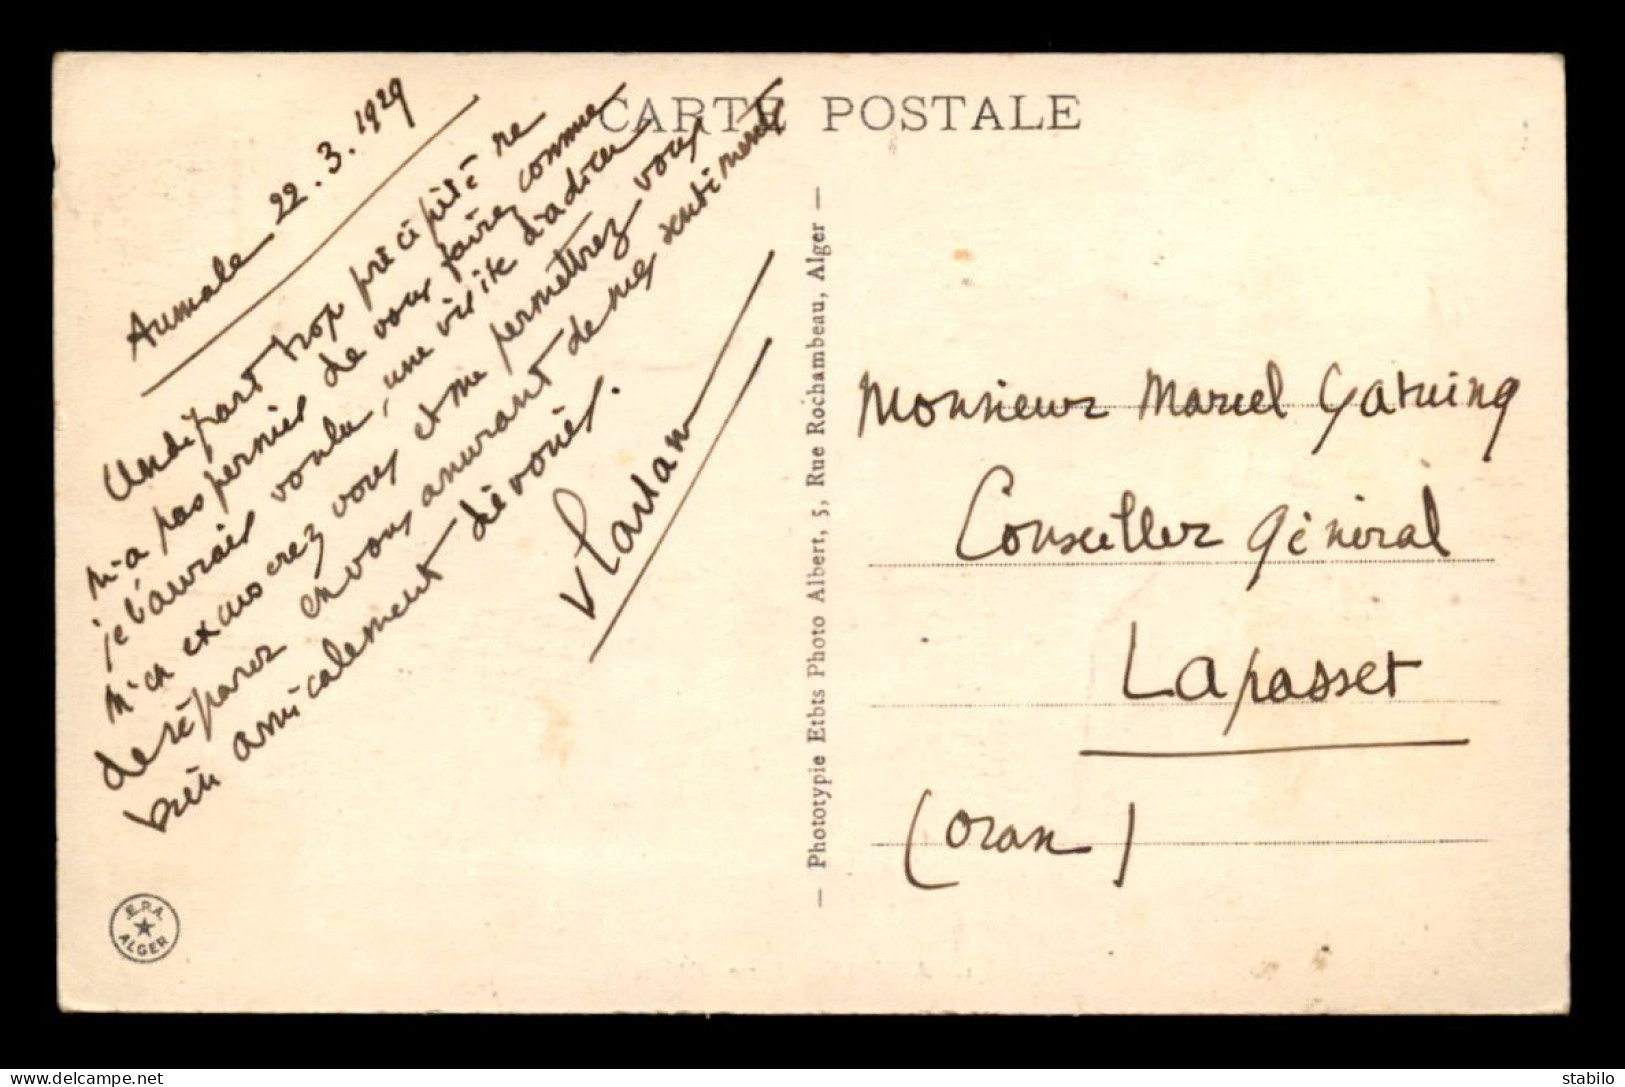 CARTE POSTALE
Aumale 22.3.1929
Un départ trop précipité ne
m'a pas permis de vous faire comme
je l'aurais voulu, une visite d'adieu
m'en excuserez vous et me permettrez vous
de réparer en vous assurant de mes sentiments
bien amicalement dévoués.
— Phototypie Etbts Photo Albert, 5, Rue Rochambeau, Alger —
Monsieur Marcel Gatuing
Conseiller général
Lapasset
(Oran)
E.P.A.
ALGER
delcampe.net
stabilo